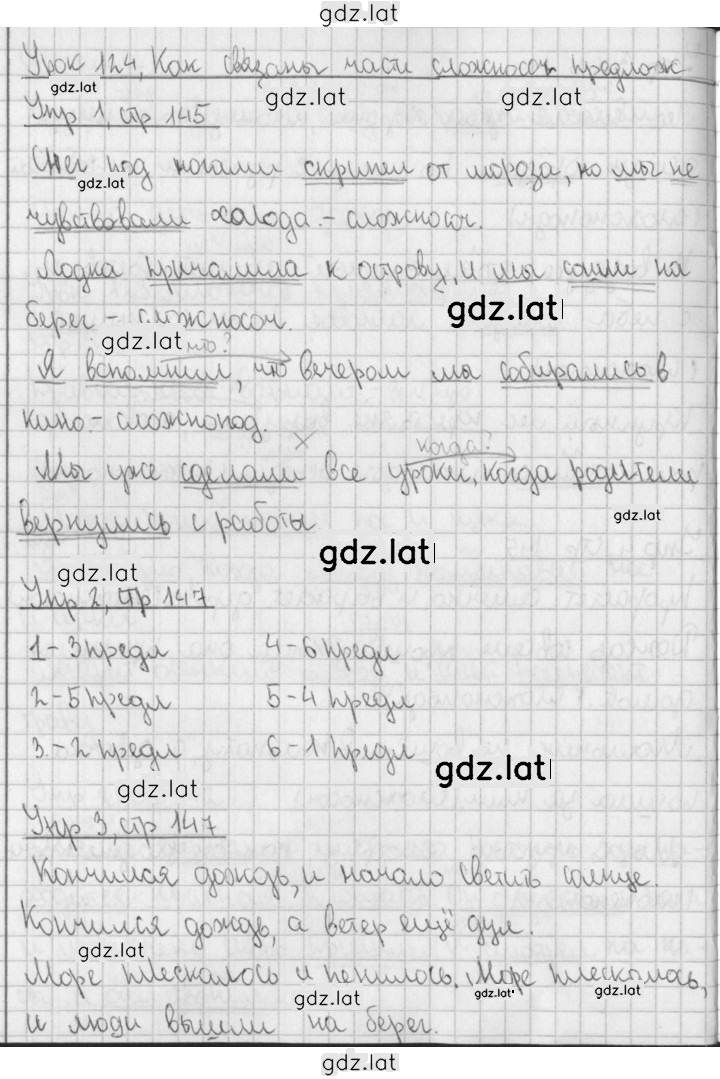 gdz.lat
Урок 124, Как связаны части сложносоч предлож
gdz.lat
gdz.lat
gdz.lat
Упр 1, стр 145
Снег под ногами скрипел от мороза, но мы не
gdz.lat
чувствовали холода. - сложносоч.
Лодка причалила к острову, и мы сошли на
берег - сложносоч.
gdz.lat
gdz.lat
что?
Я вспомнил, что вечером мы собирались в
кино. - сложнопод.
когда?
Мы уже сделали все уроки, когда родители
gdz.lat
вернулись с работы.
gdz.lat
gdz.lat
Упр 2, стр 147
1 - 3 предл 4 - 6 предл
2 - 5 предл 5 - 4 предл
3. - 2 предл 6 - 1 предл
gdz.lat
gdz.lat
Упр 3, стр 147
Кончился дождь, и начало светить солнце.
Кончился дождь, а ветер ещё дул.
gdz.lat
Море плескалось и пенилось. Море плескалось,
gdz.lat
gdz.lat
gdz.lat
и люди вышли на берег.
gdz.lat